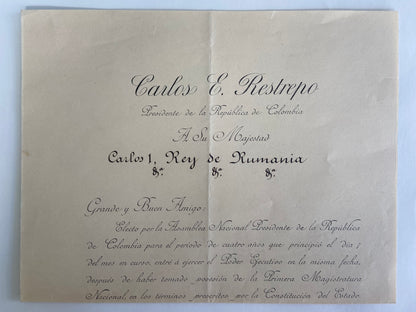 Carlos E. Restrepo
Presidente de la República de Colombia
A Su Majestad
Carlos 1, Rey de Rumania
&. &. &.
Grande y Buen Amigo:
Electo por la Asamblea Nacional Presidente de la República
de Colombia para el período de cuatro años que principió el día 7
del mes en curso, entré á ejercer el Poder Ejecutivo en la misma fecha,
después de haber tomado posesión de la Primera Magistratura
Nacional, en los términos prescritos por la Constitución del Estado.